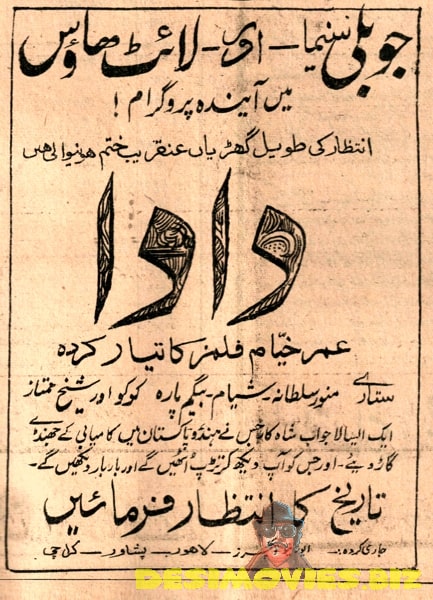 جوبلی سنیما - اور - لائٹ ھاؤس
میں آیندہ پروگرام!
انتظار کی طویل گھڑیاں عنقریب ختم ھونیوالی ہیں
دادا
عمر خیّام فلمز کا تیار کردہ
ستارے منور سلطانہ - شیام - بیگم پارہ کوکو اور شیخ ممتاز
ایک ایسا لاجواب شاہکار جس نے ہندو پاکستان میں کامیابی کے جھنڈے
گاڑ دیئے - اور جس کو آپ دیکھ کر تڑپ اٹھیں گے اور بار بار دیکھیں گے -
تاریخ کا انتظار فرمائیں
جاری کردہ :- لاھور - پشاور - کراچی
DESIMOVIES.BIZ